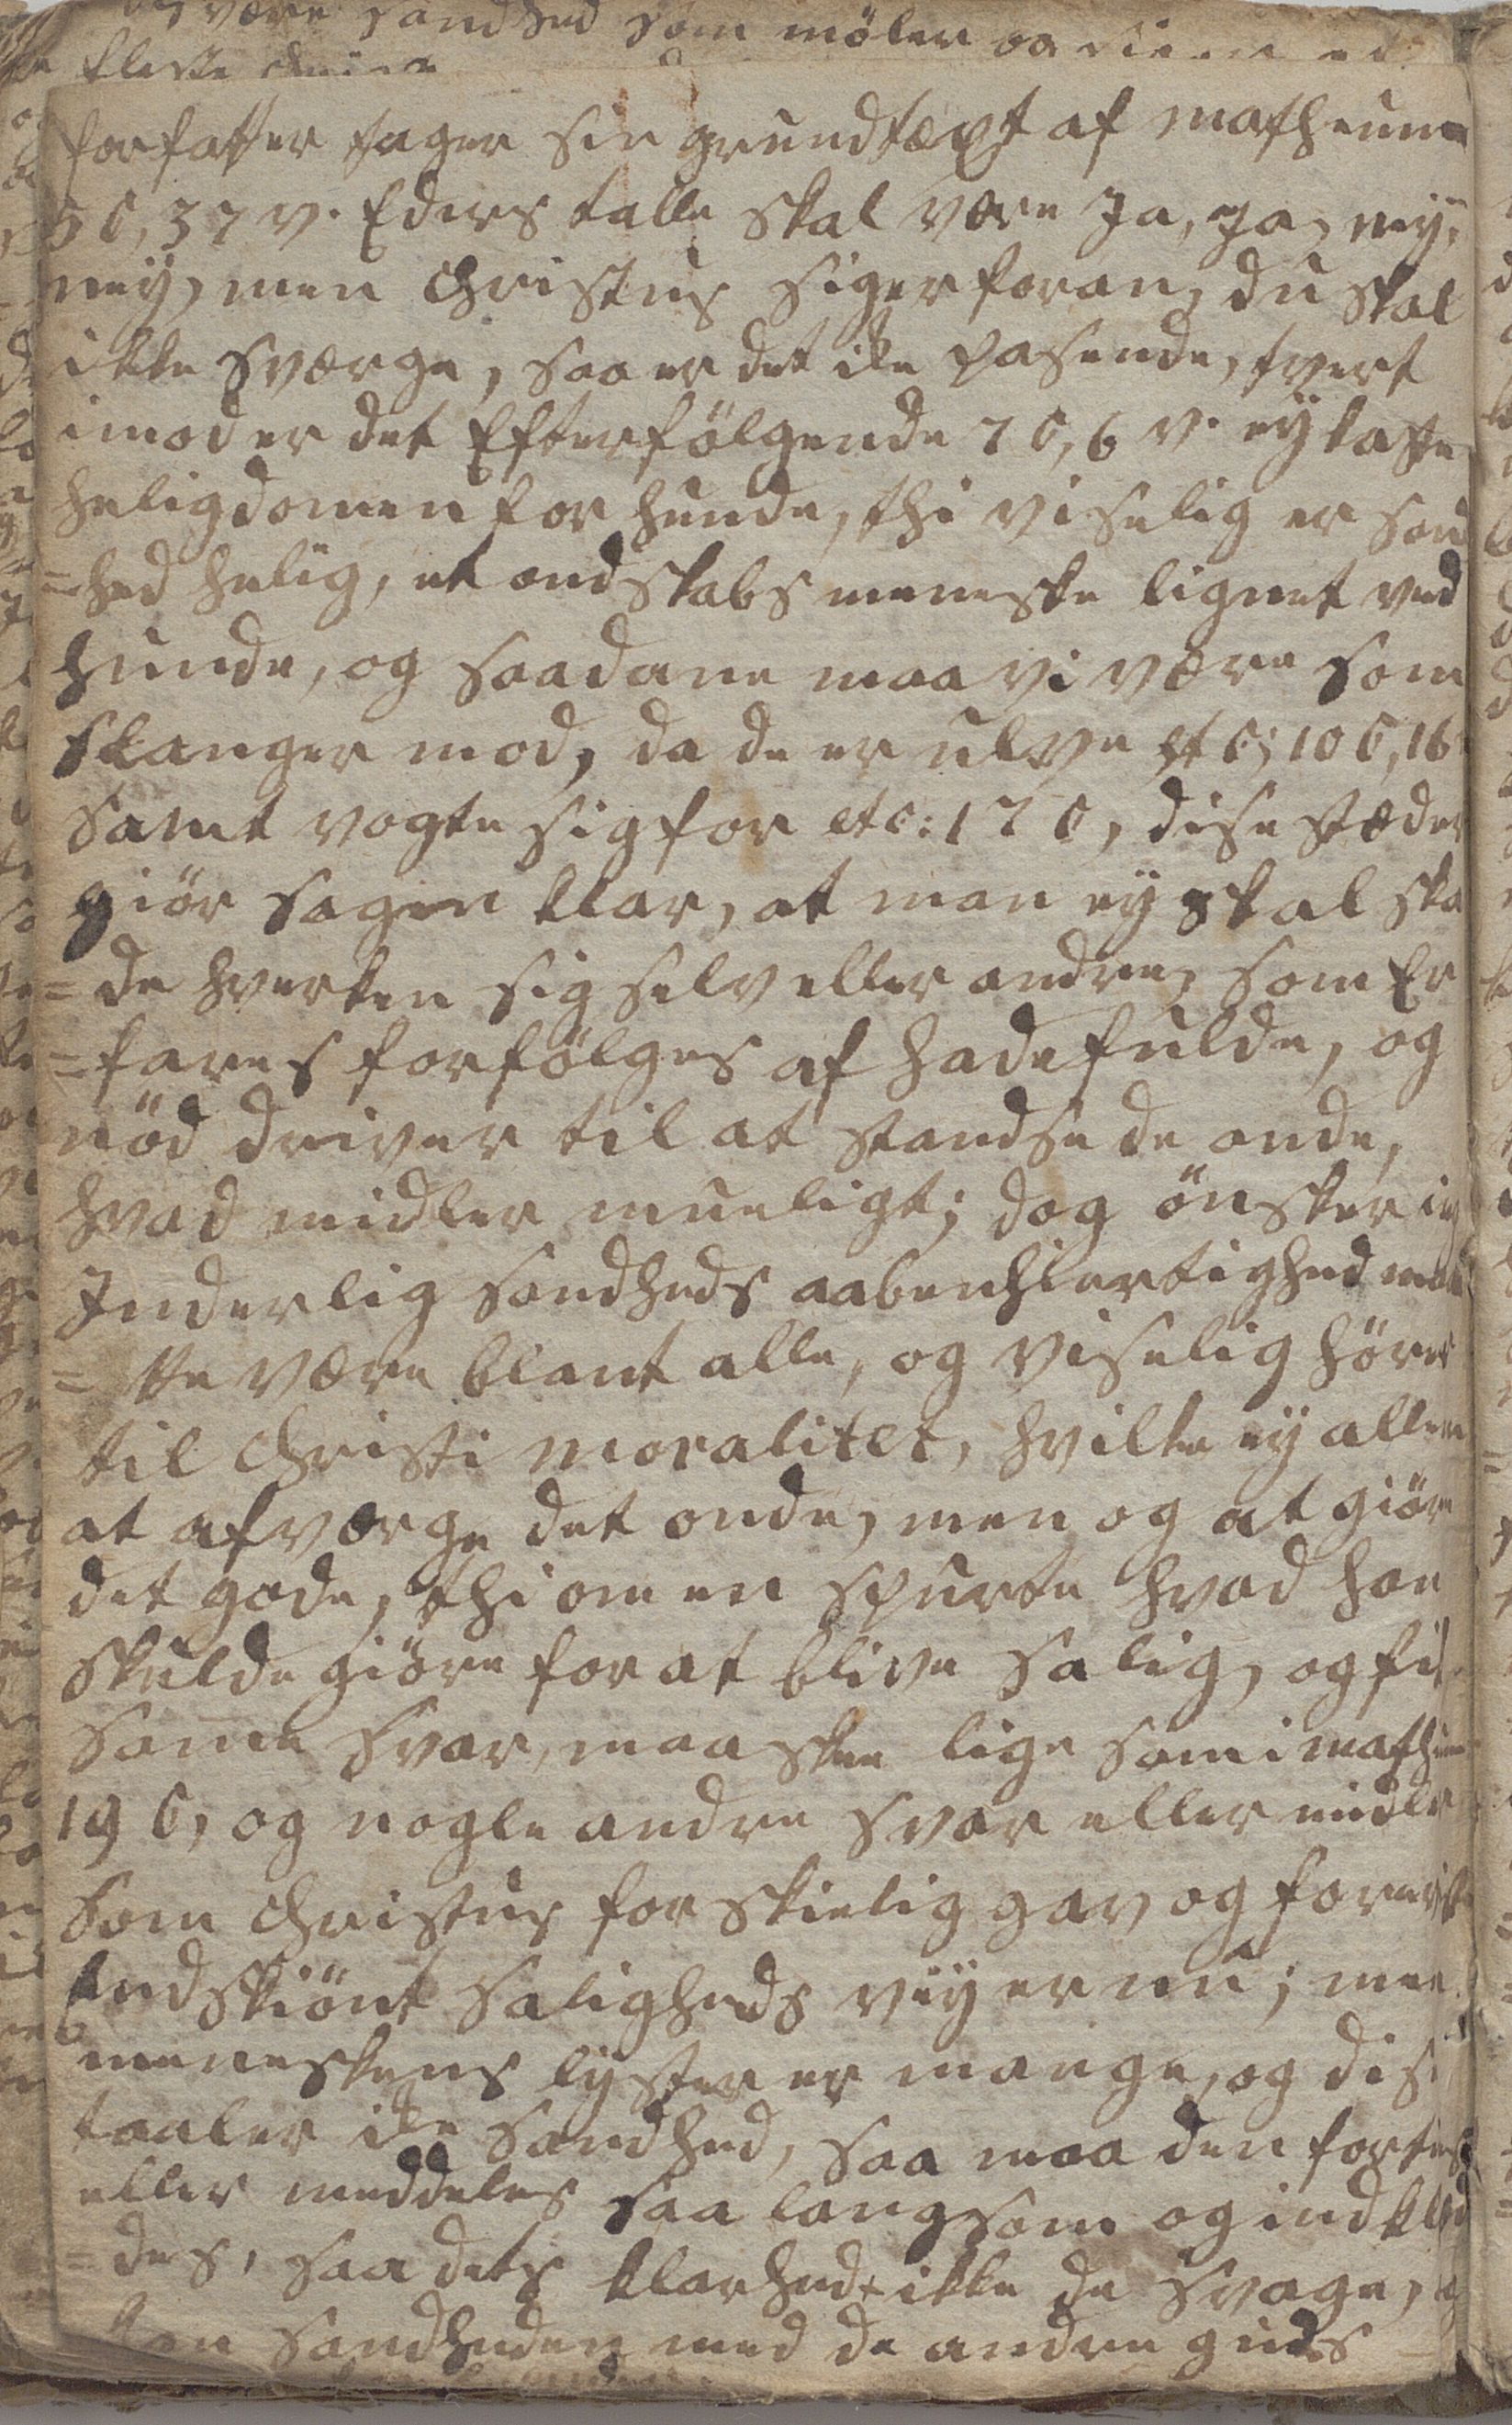 og være sandhed som möler og
fleste
forfatter tager sin grundtæxt af matheum
5 C, 37 v. Eders talle skal være Ja, Ja, nej,
neÿ, men Christus siger foran, du skal
ikke sværge, saa er det ike pasende, tvert
imod er det Efterfölgende 7 C, 6 v. eÿ kaste
heligdomen for hunde, thi viselig er san
=hed helig, et ondskabs meneske lignet ved
hunde, og saadane maa vi være som
slanger mod, da de er ulve etc; 10 C, 16
samt vogte sig for etc: 17 C, dise stæder
giör sagen klar, at man eÿ skal ska
=de hverken sig selv eller andre, som Er
=fares forfölges af hadefulde, og
nöd driver til at standse de onde,
hvad midler mueligt; dog önsker ieg
Inderlig sandheds aabenhiertighed maa
=tte være blant alle, og viselig hörer
til Christi moralitet, hvilke eÿ allene
at afværge det onde, men og at giöre
det gode, thi om en spurte hvad han
skulde giöre for at blive salig, og fik
samme svar, maaskee lige som i mathe
19 C, og nogle andre svar eller midler
som Christus forskielig gav og
Endskiönt saligheds veÿ er een; men
meneskens lÿster er mange, og dise
taaler ike sandhed, saa maa den forties
eller meddeles saa langsom og indklæ
=des, saa dets klarhed ikke de svage,
sandheden med de andre guds